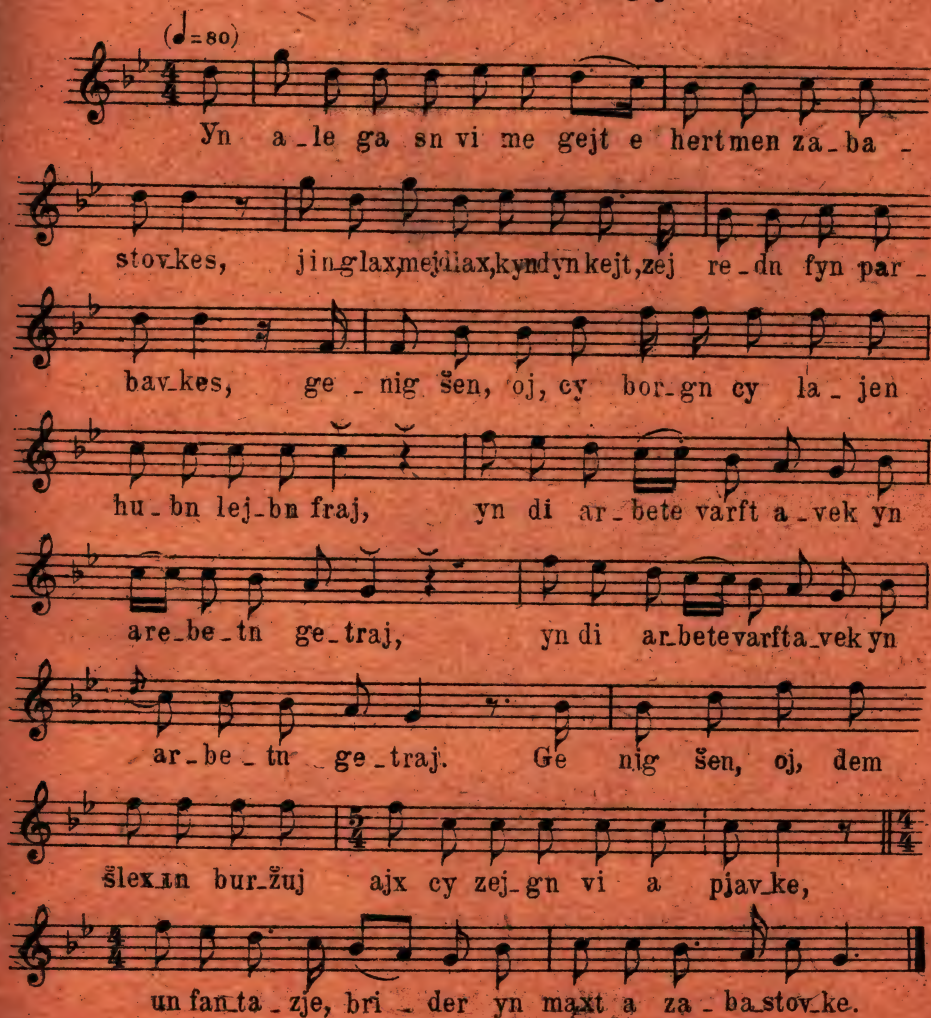 (♩=80)
Yn a_le ga sn vi me gejt e hertmen za_ba_
stov_kes, jing_lax,mejdlax,kyndynkejt,zej re_dn fyn par_
bav_kes, ge_nig šen, oj, cy bor_gn cy la_jen
hu_bn lej_bn fraj, yn di ar_bete varft a_vek yn
are_be_tn ge_traj, yn di ar_betevarfta_vek yn
ar_be_tn ge_traj. Ge nig šen, oj, dem
šlexin bur_žuj ajx cy zej_gn vi a pjav_ke,
un fan_ta_zje, bri_der yn maxt a za_ba_stov_ke.